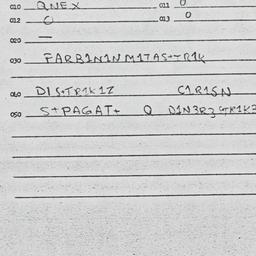 010 QNEX 011 0
012 0 013 0
020 —
030 FARB1N1N M1TAS++R1K
040 D1S+TR1K1Z C1R1SN
050 S+PAGAT+ Q